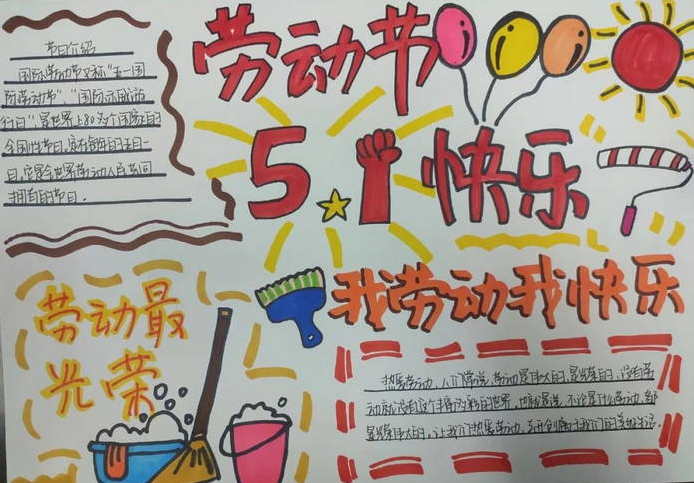 劳动节
节日介绍
国际劳动节又称"五一国
际劳动节"、"国际示威游
行日",是世界上80多个国家的
全国性节日。定在每年的五月一
日,它是全世界劳动人民共同
拥有的节日。
5.1快乐
劳动最
光荣
我劳动我快乐
热爱劳动,人们常说,劳动是伟大的,是光荣的,没有劳
动就没有这个丰富多彩的世界,也就是说,不论是什么劳动,都
是光荣伟大的。让我们热爱劳动,
我们的美好生活。